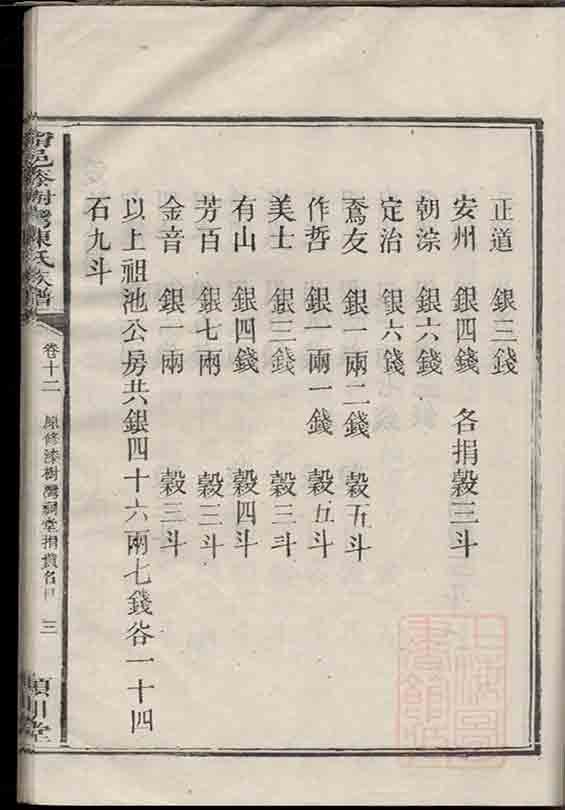 正道　銀三錢
安州　銀四錢　各捐穀三斗
朝淙　銀六錢
定治　銀六錢
鴌友　銀一兩二錢　穀五斗
作哲　銀一兩一錢　穀五斗
美士　銀三錢　穀三斗
有山　銀四錢　穀四斗
芳百　銀七兩　穀三斗
金音　銀一兩　穀三斗
以上祖池公房共銀四十六兩七錢谷一十四
石九斗
邑漆樹灣陳氏族譜
卷十二
原修漆樹灣祠堂捐貲名目
三
潁川堂
上海圖書館藏